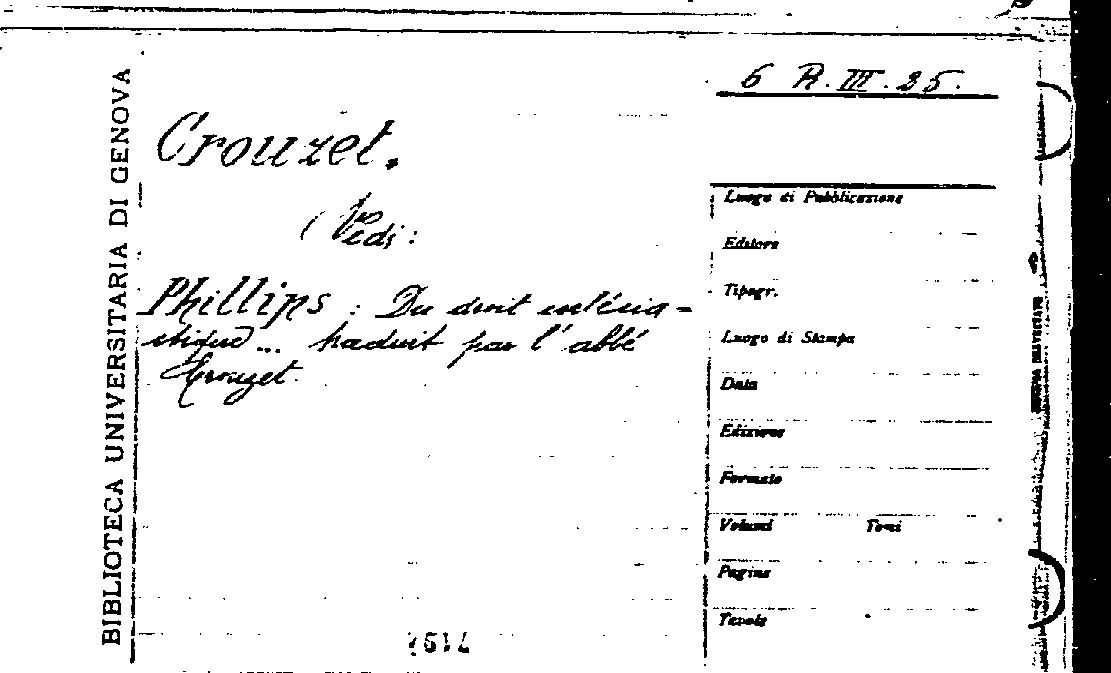 BIBLIOTECA UNIVERSITARIA DI GENOVA
6 R. III. 25.
Crouzet.
(Vedi:
Phillips : Du droit ecclésia-
stique ... traduit par l'abbé
Crouzet.
Luogo di Pubblicazione
Editore
Tipogr.
Luogo di Stampa
Data
Edizione
Formato
Volumi Tomi
Pagine
Tavole